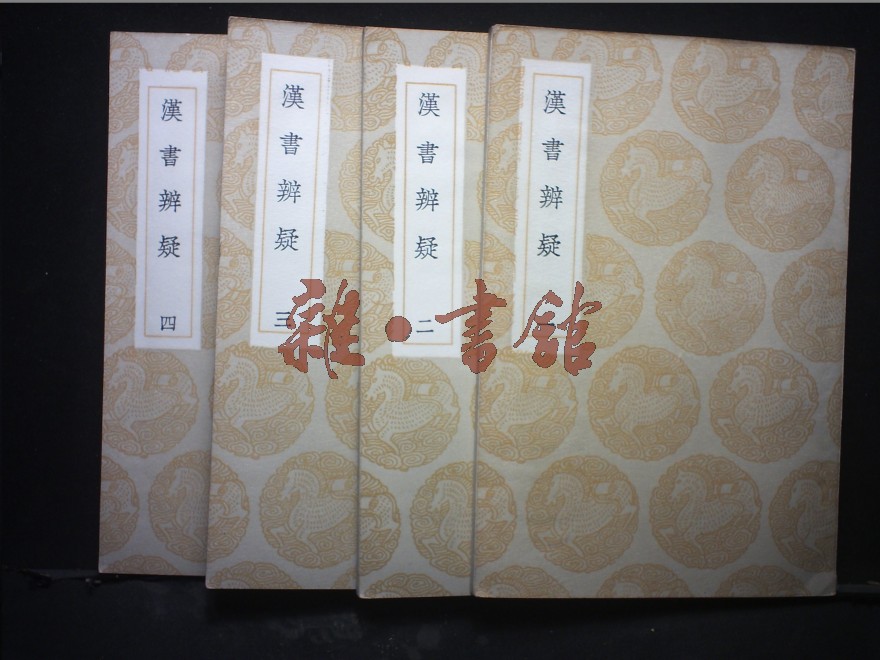 漢書辨疑 一
漢書辨疑 二
漢書辨疑 三
漢書辨疑 四
雜·書館